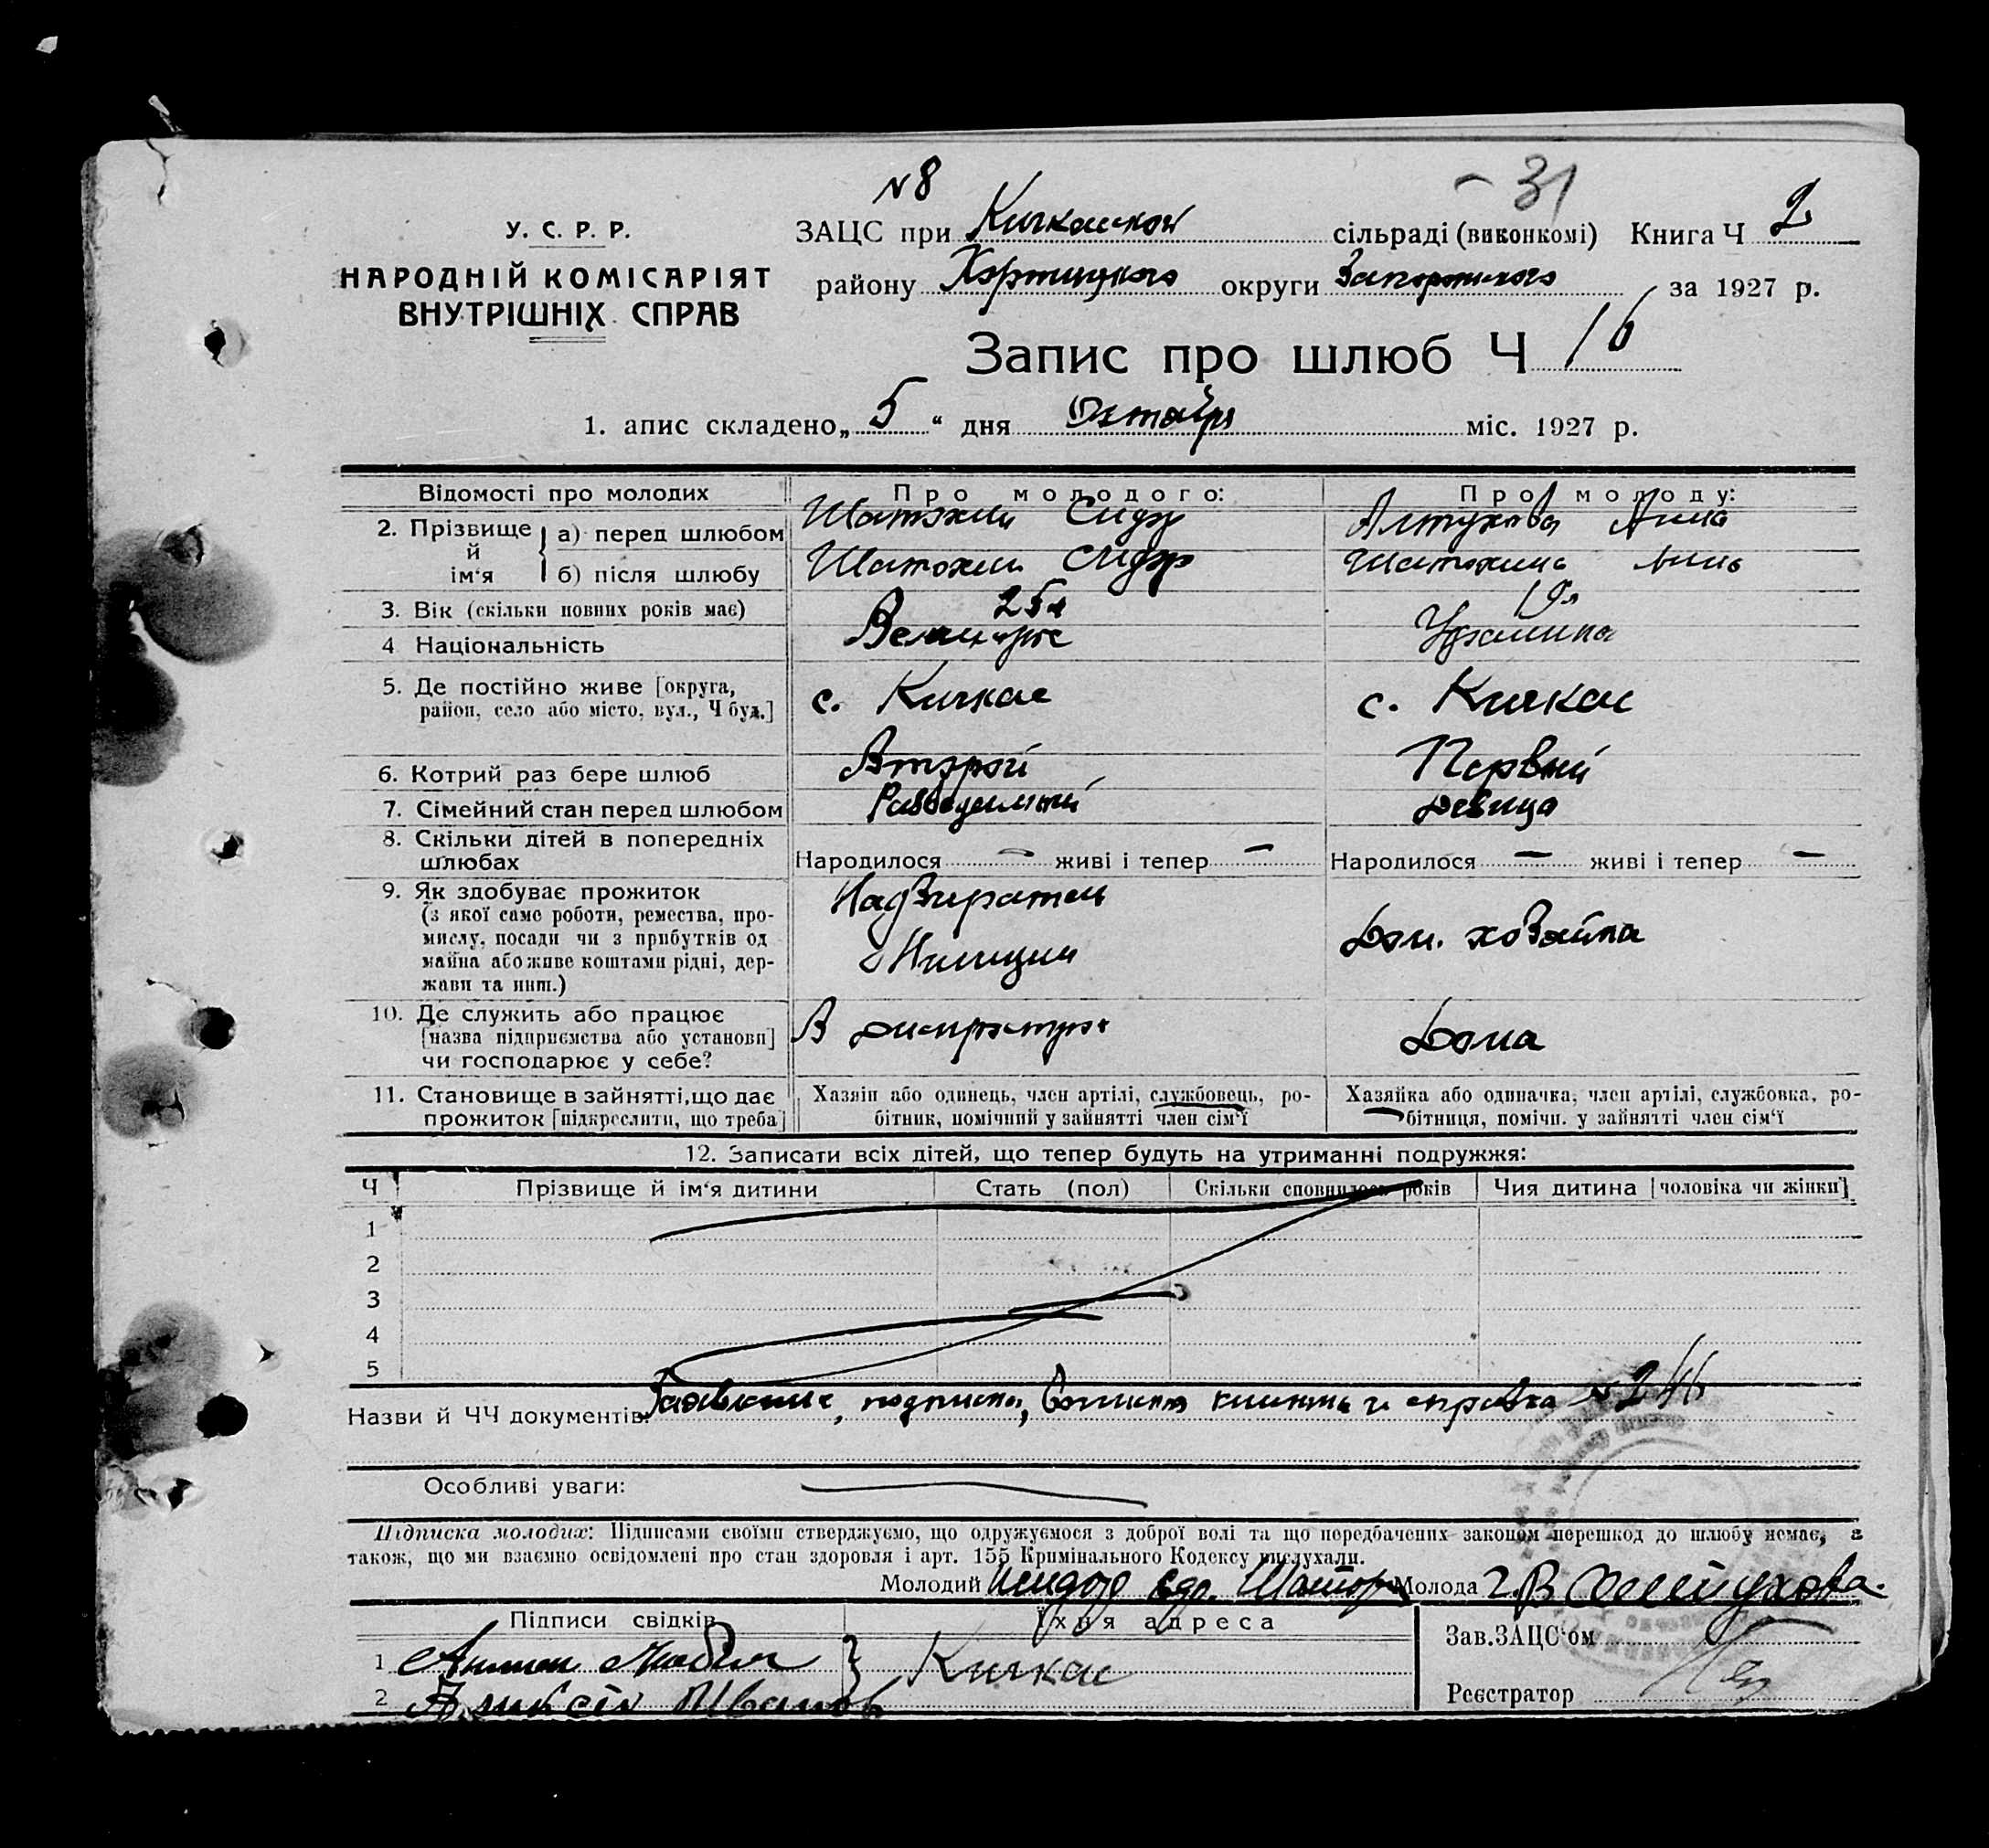 N 8
- 31
У. С. Р. Р.
НАРОДНІЙ КОМІСАРІЯТ
ВНУТРІШНІХ СПРАВ
ЗАЦС при Кичкасской сільраді (виконкомі) Книга Ч 2
району Хортицкого округи Запорожского за 1927 р.
Запис про шлюб Ч 16
1. апис складено „ 5 “ дня Октября міс. 1927 р.
Відомості про молодих Про молодого: Про молоду:
2. Прізвище й ім‘я
а) перед шлюбом Шатохин Сидор Алтухова Анна
б) після шлюбу Шатохин Сидор Шатохина Анна
3. Вік (скільки повних років має) 25 л 19 л
4 Національність Великорос Украинка
5. Де постійно живе [округа,
район, село або місто, вул., Ч буд.] с. Кичкас с. Кичкас
6. Котрий раз бере шлюб Второй Первый
7. Сімейний стан перед шлюбом девица
8. Скільки дітей в попередніх
шлюбах Народилося — живі і тепер — Народилося — живі і тепер —
9. Як здобуває прожиток
(з якої саме роботи, ремества, про-
мислу, посади чи з прибутків од
майна або живе коштами рідні, дер-
жави та инш.) Надзиратель Милиции Дом. хозяйка
10. Де служить або працює
[назва підприємства або установи]
чи господарює у себе? В Дома
11. Становище в зайнятті, що дає
прожиток [підкреслити, що треба]
Хазяїн або одинець, член артілі, службовець, ро-
бітник, помічний у зайнятті член сім‘ї
Хазяйка або одиначка, член артілі, службовка, ро-
бітниця, помічн. у зайнятті член сім‘ї
12. Записати всіх дітей, що тепер будуть на утриманні подружжя:
Ч Прізвище й ім‘я дитини Стать (пол) Скільки сповнилося років Чия дитина [чоловіка чи жінки]
1
2
3
4
5
Назви й ЧЧ документів: Заявление, подписка, книжка и справка N 246
Особливі уваги:
Підписка молодих: Підписами своїми стверджуємо, що одружуємося з доброї волі та що передбачених законом перешкод до шлюбу немає, а
також, що ми взаємно освідомлені про стан здоровля і арт. 155 Кримінального Кодексу вислухали.
Молодий Молода Алтухова.
Підписи свідків Їхня адреса
1 Кичкас
2 Иванов
Зав. ЗАЦС‘ом
Реєстратор